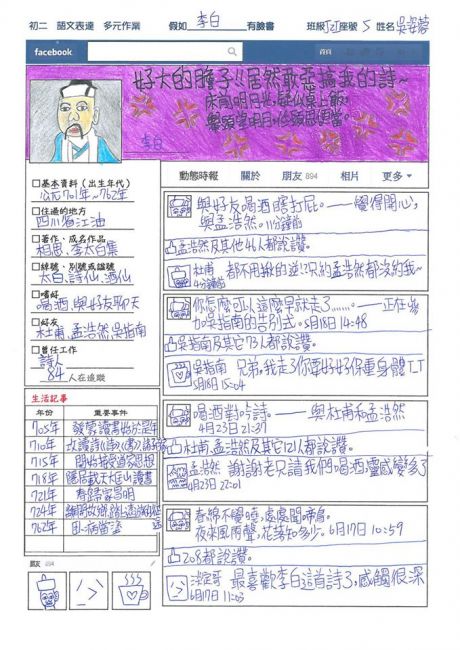 初二 語文表達 多元作業 假如李白有臉書 班級 座號 5 姓名
facebook
首頁
好大的膽子!!居然敢惡搞我的詩~
床前明月光,疑似桌上飯。
舉頭望明月,低頭思便當。
李白
動態時報 關於 朋友 894 相片 更多
□基本資料(出生年代)
公元701年~762年
□住過的地方
四川省江油
□著作、成名作品
相思、李太白集
□綽號、別號或謚號
太白、詩仙、酒仙
□嗜好
喝酒、與好友聊天
□好友
杜甫、孟浩然、吳指南
□曾任工作
詩人
84人在追蹤
生活記事
年份 重要事件
705年 發蒙讀書始於是年
710年
715年
718年 隱居戴天大匡山讀書
721年
724年
762年
朋友 894
與好友喝酒瞎打屁。——覺得開心,
與孟浩然。11分鐘前
孟浩然及其他46人都說讚。
杜甫 都不用揪的逆!?只約孟浩然都沒約我~
4分鐘前
你怎麼可以這麼早就走了……。——正在參
加吳指南的告別式。5月18日 14:48
吳指南及其它73人都說讚。
吳指南 兄弟,我走了你要好好保重身體TT
5月18日 15:04
喝酒對吟詩。——與杜甫和孟浩然
4月23日 21:37
杜甫、孟浩然及其它121人都說讚。
孟浩然 謝謝老兄請我們喝酒靈感變多了
4月23日 22:01
春綿不覺曉,處處聞啼鳥。
夜來風雨聲,花落知多少。6月17日 10:59
208都說讚。
最喜歡李白這首詩了,感觸很深
6月17日